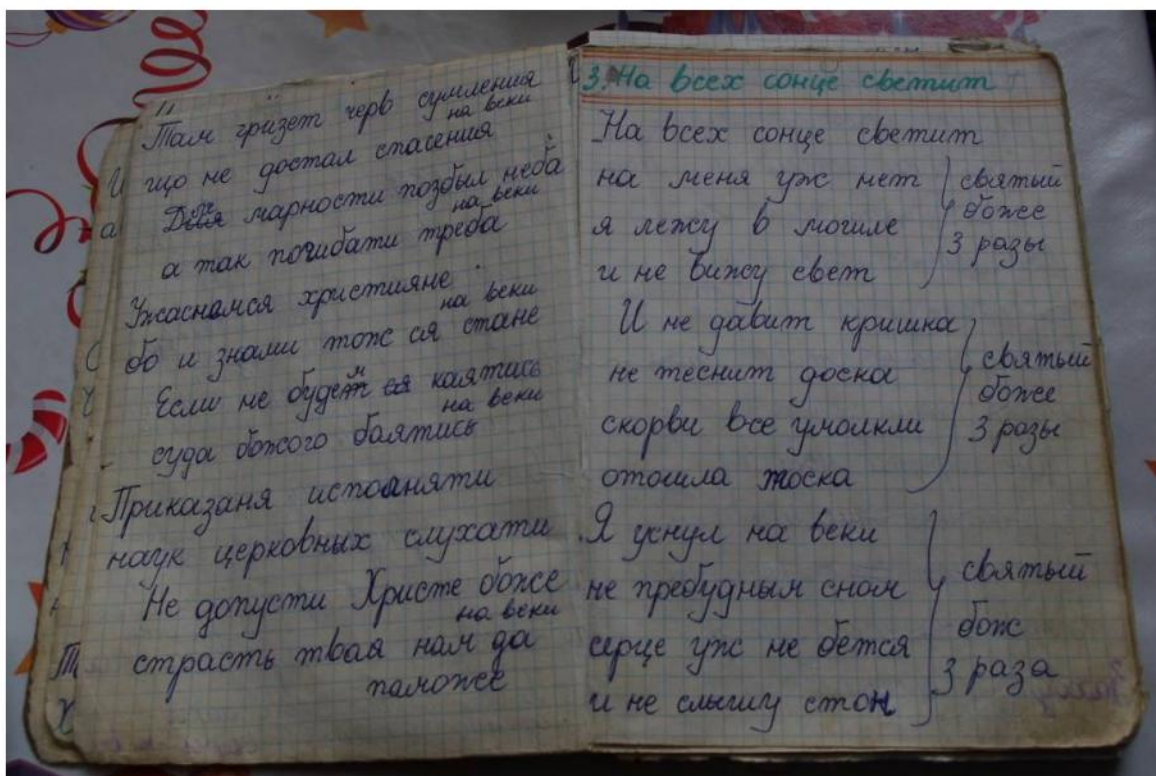 Там гризет черв сумления
на веки
що не достал спасения
Для марности позбыл неба
на веки
а так погибати треба
Ужаснемся християне
на веки
бо и знами тож ся стане
Если не будем каятись
на веки
суда божого боятись
Приказаня исполняти
наук церковных слухати
Не допусти Христе боже
на веки
страсть твая нам да
паможее
3. На всех сонце светит
На всех сонце светит
на меня уж нет
я лежу в могиле
и не вижу свет
святый
боже
3 разы
И не давит кришка
не теснит доска
скорви все умолкли
отошла тоска
святый
боже
3 разы
Я уснул на веки
не пребудным сном
серце уж не бется
и не слышу стон
святый
бож
3 раза